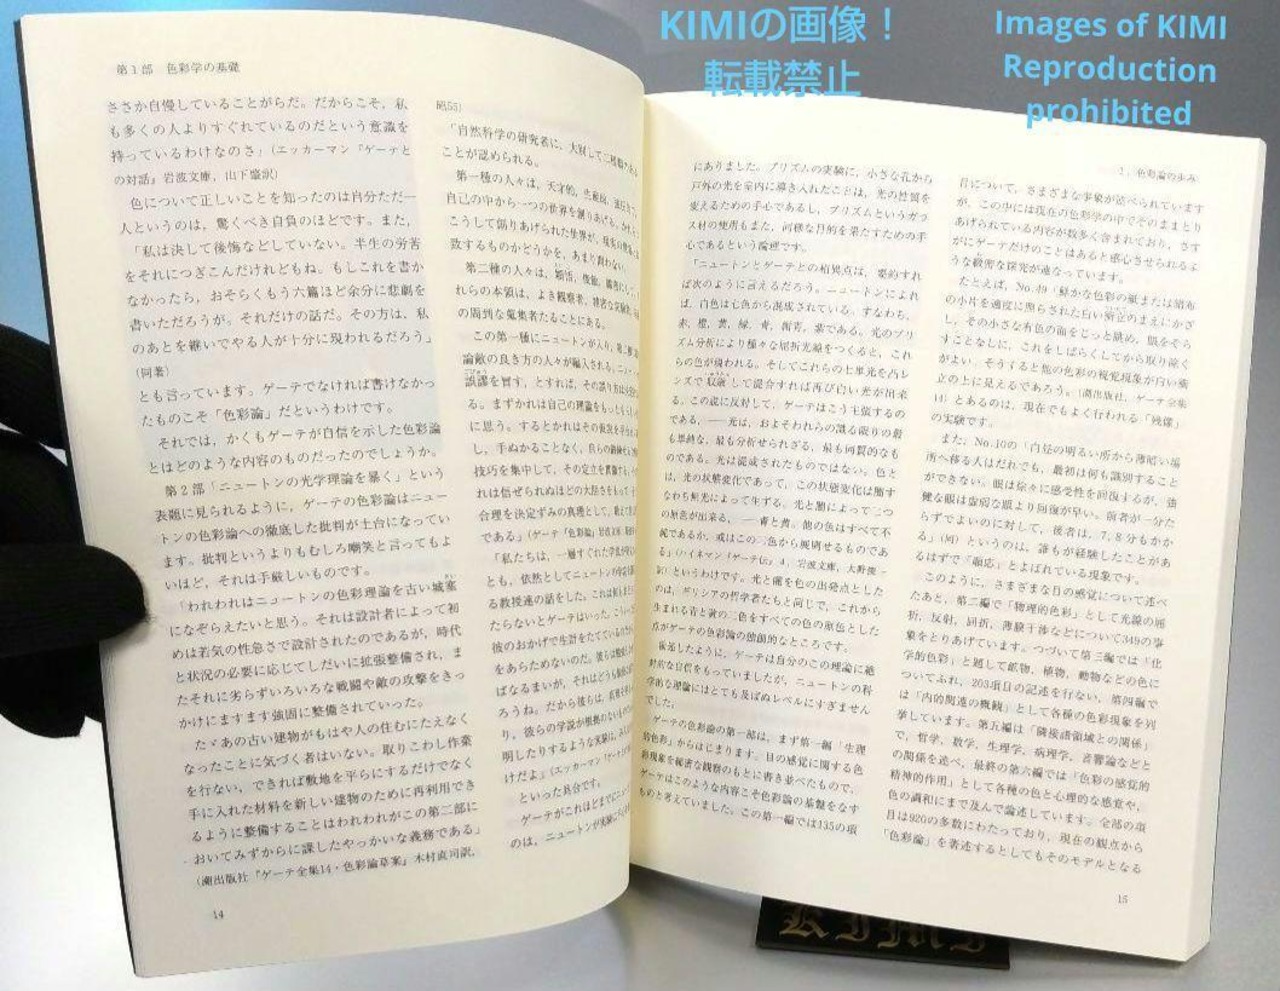 KIMIの画像！
転載禁止
Images of KIMI
Reproduction
prohibited
第1部 色彩学の基礎
ささか自慢していることがらだ。だからこそ，私
も多くの人よりすぐれているのだという意識を
持っているわけなのさ」(エッカーマン『ゲーテと
の対話』岩波文庫，山下肇訳)
色について正しいことを知ったのは自分ただ一
人というのは，驚くべき自負のほどです。また，
「私は決して後悔などしていない。半生の労苦
をそれにつぎこんだけれどもね。もしこれを書か
なかったら，おそらくもう六篇ほど余分に悲劇を
書いただろうが。それだけの話だ。その方は，私
のあとを継いでやる人が十分に現われるだろう」
(同著)
とも言っています。ゲーテでなければ書けなかっ
たものこそ「色彩論」だというわけです。
それでは，かくもゲーテが自信を示した色彩論
とはどのような内容のものだったのでしょうか。
第2部「ニュートンの光学理論を暴く」という
表題に見られるように，ゲーテの色彩論はニュー
トンの色彩論への徹底した批判が土台になってい
ます。批判というよりもむしろ嘲笑と言ってもよ
いほど，それは手厳しいものです。
「われわれはニュートンの色彩理論を古い城塞
になぞらえたいと思う。それは設計者によって初
めは若気の性急さで設計されたのであるが，時代
と状況の必要に応じてしだいに拡張整備され，ま
たそれに劣らずいろいろな戦闘や敵の攻撃をきっ
かけにますます強固に整備されていった。
たゞあの古い建物がもはや人の住むにたえなく
なったことに気づく者はいない。取りこわし作業
を行ない，できれば敷地を平らにするだけでなく
手に入れた材料を新しい建物のために再利用でき
るように整備することはわれわれがこの第二部に
おいてみずからに課したやっかいな義務である」
(潮出版社『ゲーテ全集14・色彩論草案』木村直司訳，
昭55)
「自然科学の研究者に，大別して二種類の
ことが認められる。
第一種の人々は，天才的，生産的，
自己の中から一つの世界を創りあげる，
こうして創りあげられた世界が，現実の世界
致するものかどうかを，あまり問わない。
第二種の人々は，
れらの本領は，よき観察者，
の周到な蒐集者たることにある。
この第一種にニュートンが入り，第二種
論敵の良き方の人々が編入される。
誤謬を冒す，とすれば，その誤り方は
る。まずかれは自己の理論をもっとも
に思う。するとかれはその仮説を
し，手ぬかることなく，自らの
技巧を集中して，その定立を貫徹する。
れは信ぜられぬほどの大胆さをもって
合理を決定ずみの真理として，
である」(ゲーテ『色彩論』岩波文庫，
「私たちは，一層すぐれた学説が
とも，依然としてニュートンの
る教授達の話をした。これは
たらないとゲーテはいった。
彼のおかげで生計をたてている
をあらためないのだ。彼らは
ばなるまいが，それはどうも
ろうね。だから彼らは，真理を
り，彼らの学説が根拠のないもの
明したりするような実験は，
けだよ」(エッカーマン『ゲーテ
といった具合です。
ゲーテがこれほどまでにニュート
のは，ニュートンが実験に
14
2．色彩論の歩み
にありました。プリズムの実験に，小さな孔から
戸外の光を室内に導き入れたことは，光の性質を
変えるための手心であるし，プリズムというガラ
ス材の使用もまた，同様な目的を果たすための手
心であるという論理です。
「ニュートンとゲーテとの相異点は，要約すれ
ば次のように言えるだろう。ニュートンによれ
ば，白色は七色から混成されている。すなわち，
赤，橙，黄，緑，青，藍青，紫である。光のプリ
ズム分析により種々な屈折光線をつくると，これ
らの色が現われる。そしてこれらの七単光を凸レ
ンズで収斂して混合すれば再び白い光が出来
る。この説に反対して，ゲーテはこう主張するの
である，――光は，およそわれらの識る限りの最
も単純な，最も分析せられざる，最も同質的なも
のである。光は混成されたものではない。色と
は，光の状態変化であって，この状態変化は闇す
なわち無光によって生ずる。光と闇によって二つ
の原色が出来る，――青と黄。他の色はすべて不
純であるか，或はこの二色から説明せるものであ
る」(ハイネマン『ゲーテ伝』4，岩波文庫，大野俊一
訳)というわけです。光と闇を色の出発点とした
のは，ギリシアの哲学者たちと同じで，これから
生まれる青と黄の二色をすべての色の原色とした
点がゲーテの色彩論の独創的なところです。
復活したように，ゲーテは自分のこの理論に絶
対的な自信をもっていましたが，ニュートンの科
学的な理論にはとても及ばぬレベルにすぎません
でした。
ゲーテの色彩論の第一部は，まず第一編「生理
的色彩」からはじまります。目の感覚に関する色
彩現象を秘密な観察のもとに書き並べたもので，
ゲーテはこのような内容こそ色彩論の基盤をなす
ものと考えていました。この第一編では135の項
目について，さまざまな事象が述べられています
が，この中には現在の色彩学の中でそのままとり
あげられている内容が数多く含まれており，さす
がにゲーテだけのことはあると感心させられるよ
うな緻密な探究が連なっています。
たとえば，No.49「鮮かな色彩の紙または絹布
の小片を適度に照らされた白い衝立のまえにかざ
し，その小さな有色の面をじっと眺め，眼をそら
すことなしに，これをしばらくしてから取り除く
がよい。そうすると他の色彩の視覚現象が白い衝
立の上に見えるであろう。」(潮出版社，ゲーテ全集
14)とあるのは，現在でもよく行われる「残像」
の実験です。
また，No.10の「白昼の明るい所から薄暗い場
所へ移る人はだれでも，最初は何も識別すること
ができない。眼は徐々に感受性を回復するが，強
健な眼は虚弱な眼より回復が早い。前者が一分た
らずでよいのに対して，後者は，7，8分もかか
る」(同)というのは，誰もが経験したことがあ
るはずで「順応」とよばれている現象です。
このように，さまざまな目の感覚について述べ
たあと，第二編で「物理的色彩」として光線の屈
折，反射，回折，薄膜干渉などについて349の事
象をとりあげています。つづいて第三編では「化
学的色彩」と題して鉱物，植物，動物などの色に
ついてふれ，203項目の記述を行ない，第四編で
は「内的関連の概観」として各種の色彩現象を列
挙しています。第五編は「隣接諸領域との関係」
で，哲学，数学，生理学，病理学，音響論などと
の関係を述べ，最終の第六編では「色彩の感覚的
精神的作用」として各種の色と心理的な感覚や，
色の調和にまで及んで論述しています。全部の項
目は920の多数にわたっており，現在の観点から
「色彩論」を著述するとしてもそのモデルとなる
15
KIMI